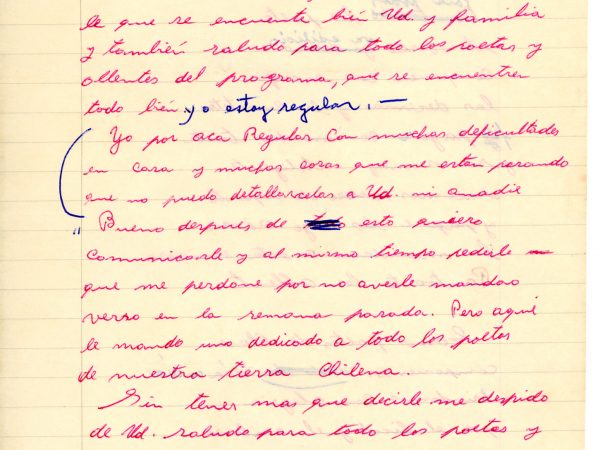 le que se encuente bién Ud. y familia
y también saludo para todo los poetas y
ollentes del programa, que se encuentren
todo bien yo estoy regular. —
Yo por aca Regular Con muchas deficultades
en casa y muchas cosas que me estan pasando
que no puedo detallarcelas a Ud. ni anadie
" Bueno despues de esto quiero
Comunicarle y al mismo tiempo pedirle
que me perdone por no averle mandao
verso en la semana pasada. Pero aquí
le mando uno dedicado a todo los poetas
de nuestra tierra Chilena.
Sin tener mas que decirle me despido
de Ud. saludo para todo los poetas y